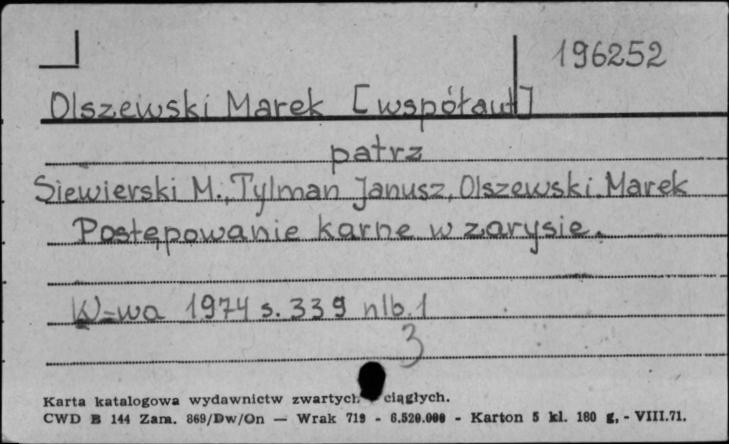 196252
Olszewski Marek [współaut]
patrz
Siewierski M., Tylman Janusz, Olszewski Marek
Postępowanie karne w zarysie.
W-wa 1974 s. 339 nlb. 1
3
Karta katalogowa wydawnictw zwartych ciągłych.
CWD B 144 Zam. 869/Dw/On — Wrak 719 - 6.520.000 - Karton 5 kl. 180 g, - VIII.71.